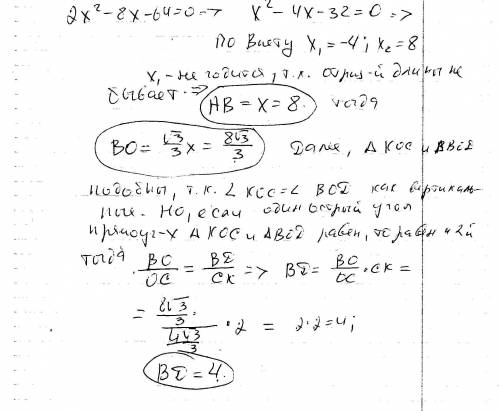 2x² - 8x - 64 = 0 => x² - 4x - 32 = 0 =>
по Виету x₁ = -4; x₂ = 8
x₁ - не годится, т.к. отриц-й длины не
бывает. => HB = x = 8. тогда
BO = √3/3 x = 8√3/3 Далее, Δ KOC и Δ BEO
подобны, т.к. ∠ KOC = ∠ BOE как вертикаль-
ные. Но, если один острый угол
прямоуг-х Δ KOC и Δ BEO равен, то равен и 2й
тогда BO/OC = BE/CK => BE = BO/OC · CK =
= (8√3/3)/(4√3/3) · 2 = 2·2 = 4;
BE = 4.